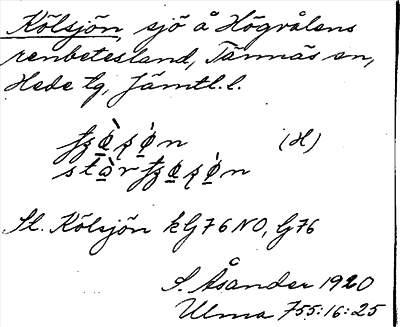 Kölsjön, sjö å Högvålens
renbetesland, Tännäs sn,
Hede tg, Jämtl.l.
(H)
St. Kölsjön kG76NO, G76
S. Åsander 1920
Ulma 755:16:25